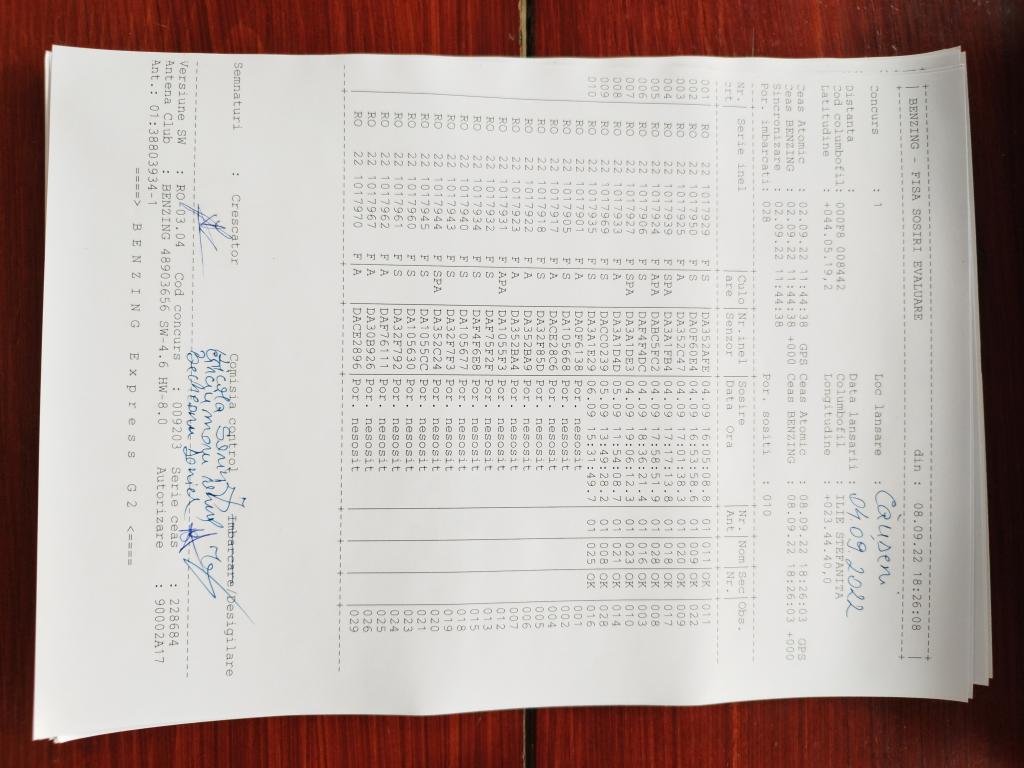 BENZING - FISA SOSIRI EVALUARE din : 08.09.22 18:26:08
Concurs : 1 Loc lansare : Căușeni
Distanta : Data lansarii : 04.09.2022
Cod columbofil: 000F8 008442 Columbofil : ILIE STEFANITA
Latitudine : +044.05.19,2 Longitudine : +023.44.40,0
Ceas Atomic : 02.09.22 11:44:38 GPS Ceas Atomic : 08.09.22 18:26:03 GPS
Ceas BENZING : 02.09.22 11:44:38 +000 Ceas BENZING : 08.09.22 18:26:03 +000
Sincronizare : 02.09.22 11:44:38
Por. imbarcati: 028 Por. sositi : 010
Nr. Serie inel Culo Nr.inel Sosire Nr. Nom Sec Obs.
crt are Senzor Data Ora Ant Nr.
001 RO 22 1017929 F S DA352AFE 04.09 16:05:08.8 01 011 OK 011
002 RO 22 1017950 F S DA0F60E4 04.09 16:53:58.6 01 009 OK 022
003 RO 22 1017925 F A DA352C47 04.09 17:01:38.3 01 020 OK 009
004 RO 22 1017939 F SPA DA3A1FB4 04.09 17:17:13.8 01 018 OK 017
005 RO 22 1017924 F APA DABC5FC2 04.09 17:58:51.9 01 028 OK 008
006 RO 22 1017906 F S DAF4F4DC 04.09 18:36:21.4 01 016 OK 003
007 RO 22 1017927 F SPA DA3A1DE3 04.09 19:06:12.3 01 023 OK 010
008 RO 22 1017933 F S DA3A1D4D 05.09 11:54:08.7 01 021 OK 014
009 RO 22 1017969 F S DACC0239 05.09 13:49:28.2 01 008 OK 028
010 RO 22 1017935 F S DA3A1E29 06.09 15:31:49.7 01 025 OK 016
RO 22 1017901 F A DA0F6138 Por. nesosit 001
RO 22 1017905 F S DA105668 Por. nesosit 002
RO 22 1017911 F A DACE28C6 Por. nesosit 004
RO 22 1017918 F S DA32F85D Por. nesosit 005
RO 22 1017922 F A DA352BA9 Por. nesosit 006
RO 22 1017923 F A DA352BA4 Por. nesosit 007
RO 22 1017931 F APA DA1055F3 Por. nesosit 012
RO 22 1017932 F S DAF55F2F Por. nesosit 013
RO 22 1017934 F S DAF4F6E8 Por. nesosit 015
RO 22 1017940 F S DA105677 Por. nesosit 018
RO 22 1017943 F S DA32F7F3 Por. nesosit 019
RO 22 1017944 F SPA DA352C24 Por. nesosit 020
RO 22 1017945 F S DA1055CC Por. nesosit 021
RO 22 1017960 F S DA105630 Por. nesosit 023
RO 22 1017961 F S DA32F792 Por. nesosit 024
RO 22 1017962 F A DAF76111 Por. nesosit 025
RO 22 1017967 F A DA30B926 Por. nesosit 026
RO 22 1017970 F A DACE2896 Por. nesosit 029
Semnaturi : Crescator Comisia control Imbarcare/Desigilare
Versiune SW : RO-03.04 Cod concurs : 009203 Serie ceas : 228684
Antena Club : BENZING 48903656 SW-4.6 HW-8.0 Autorizare : 90002A17
Ant.: 01:38803934-1
====> B E N Z I N G E x p r e s s G 2 <====